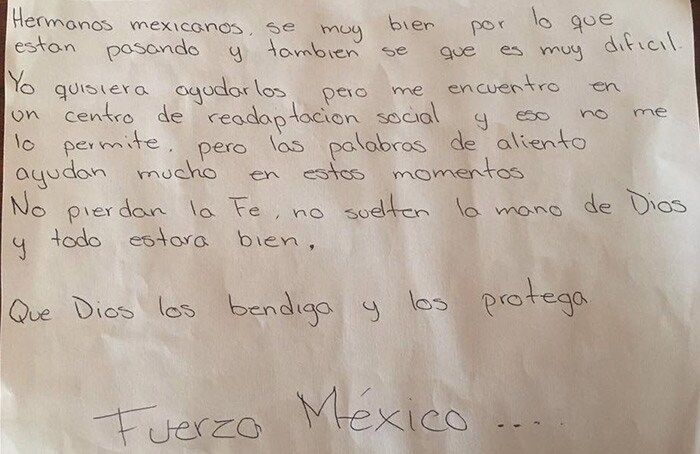 Hermanos mexicanos, se muy bien por lo que
estan pasando y tambien se que es muy dificil.
Yo quisiera ayudarlos pero me encuentro en
un centro de readaptacion social y eso no me
lo permite, pero las palabras de aliento
ayudan mucho en estos momentos
No pierdan la Fe, no suelten la mano de Dios
y todo estara bien.
Que Dios los bendiga y los protega
Fuerza México ....